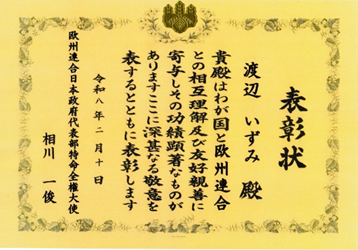 表彰状
渡辺 いずみ 殿
貴殿はわが国と欧州連合
との相互理解及び友好親善に
寄与しその功績顕著なものが
ありますここに深甚なる敬意を
表するとともに表彰します
令和八年二月十日
欧州連合日本政府代表部特命全権大使
相川 一俊